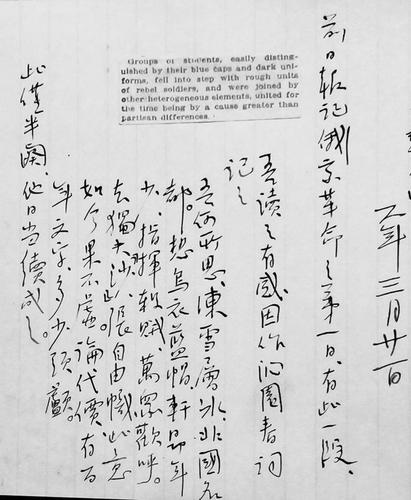 六年三月廿一日
前日報記俄京革命之第一日有此一段、
Groups of students, easily disting-
uished by their blue caps and dark uni-
forms, fell into step with rough units
of rebel soldiers, and were joined by
other heterogeneous elements, united for
the time being by a cause greater than
partisan differences.
吾讀之有感因作沁園春詞
記之
吾何所思凍雪層冰北國名
都。想烏衣藍帽軒昂年
少、指揮殺賊、萬眾歡呼。
去獨夫沙、張自由幟此意
如今果不虛論代價有百
年文字多少頭顱。
此僅半闋、他日當續成之。